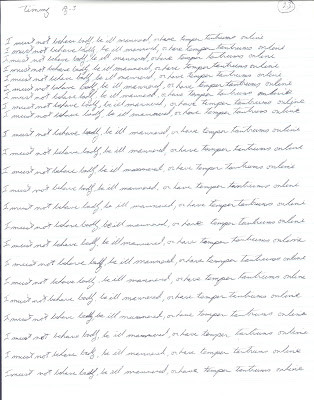 I must not behave badly, be ill mannered, or have temper tantrums online
I must not behave badly, be ill mannered, or have temper tantrums online
I must not behave badly, be ill mannered, or have temper tantrums online
I must not behave badly, be ill mannered, or have temper tantrums online
I must not behave badly, be ill mannered, or have temper tantrums online
I must not behave badly, be ill mannered, or have temper tantrums online
I must not behave badly, be ill mannered, or have temper tantrums online
I must not behave badly, be ill mannered, or have temper tantrums online
I must not behave badly, be ill mannered, or have temper tantrums online
I must not behave badly, be ill mannered, or have temper tantrums online
I must not behave badly, be ill mannered, or have temper tantrums online
I must not behave badly, be ill mannered, or have temper tantrums online
I must not behave badly, be ill mannered, or have temper tantrums online
I must not behave badly, be ill mannered, or have temper tantrums online
I must not behave badly, be ill mannered, or have temper tantrums online
I must not behave badly, be ill mannered, or have temper tantrums online
I must not behave badly, be ill mannered, or have temper tantrums online
I must not behave badly, be ill mannered, or have temper tantrums online
I must not behave badly, be ill mannered, or have temper tantrums online
I must not behave badly, be ill mannered, or have temper tantrums online
I must not behave badly, be ill mannered, or have temper tantrums online
I must not behave badly, be ill mannered, or have temper tantrums online
I must not behave badly, be ill mannered, or have temper tantrums online